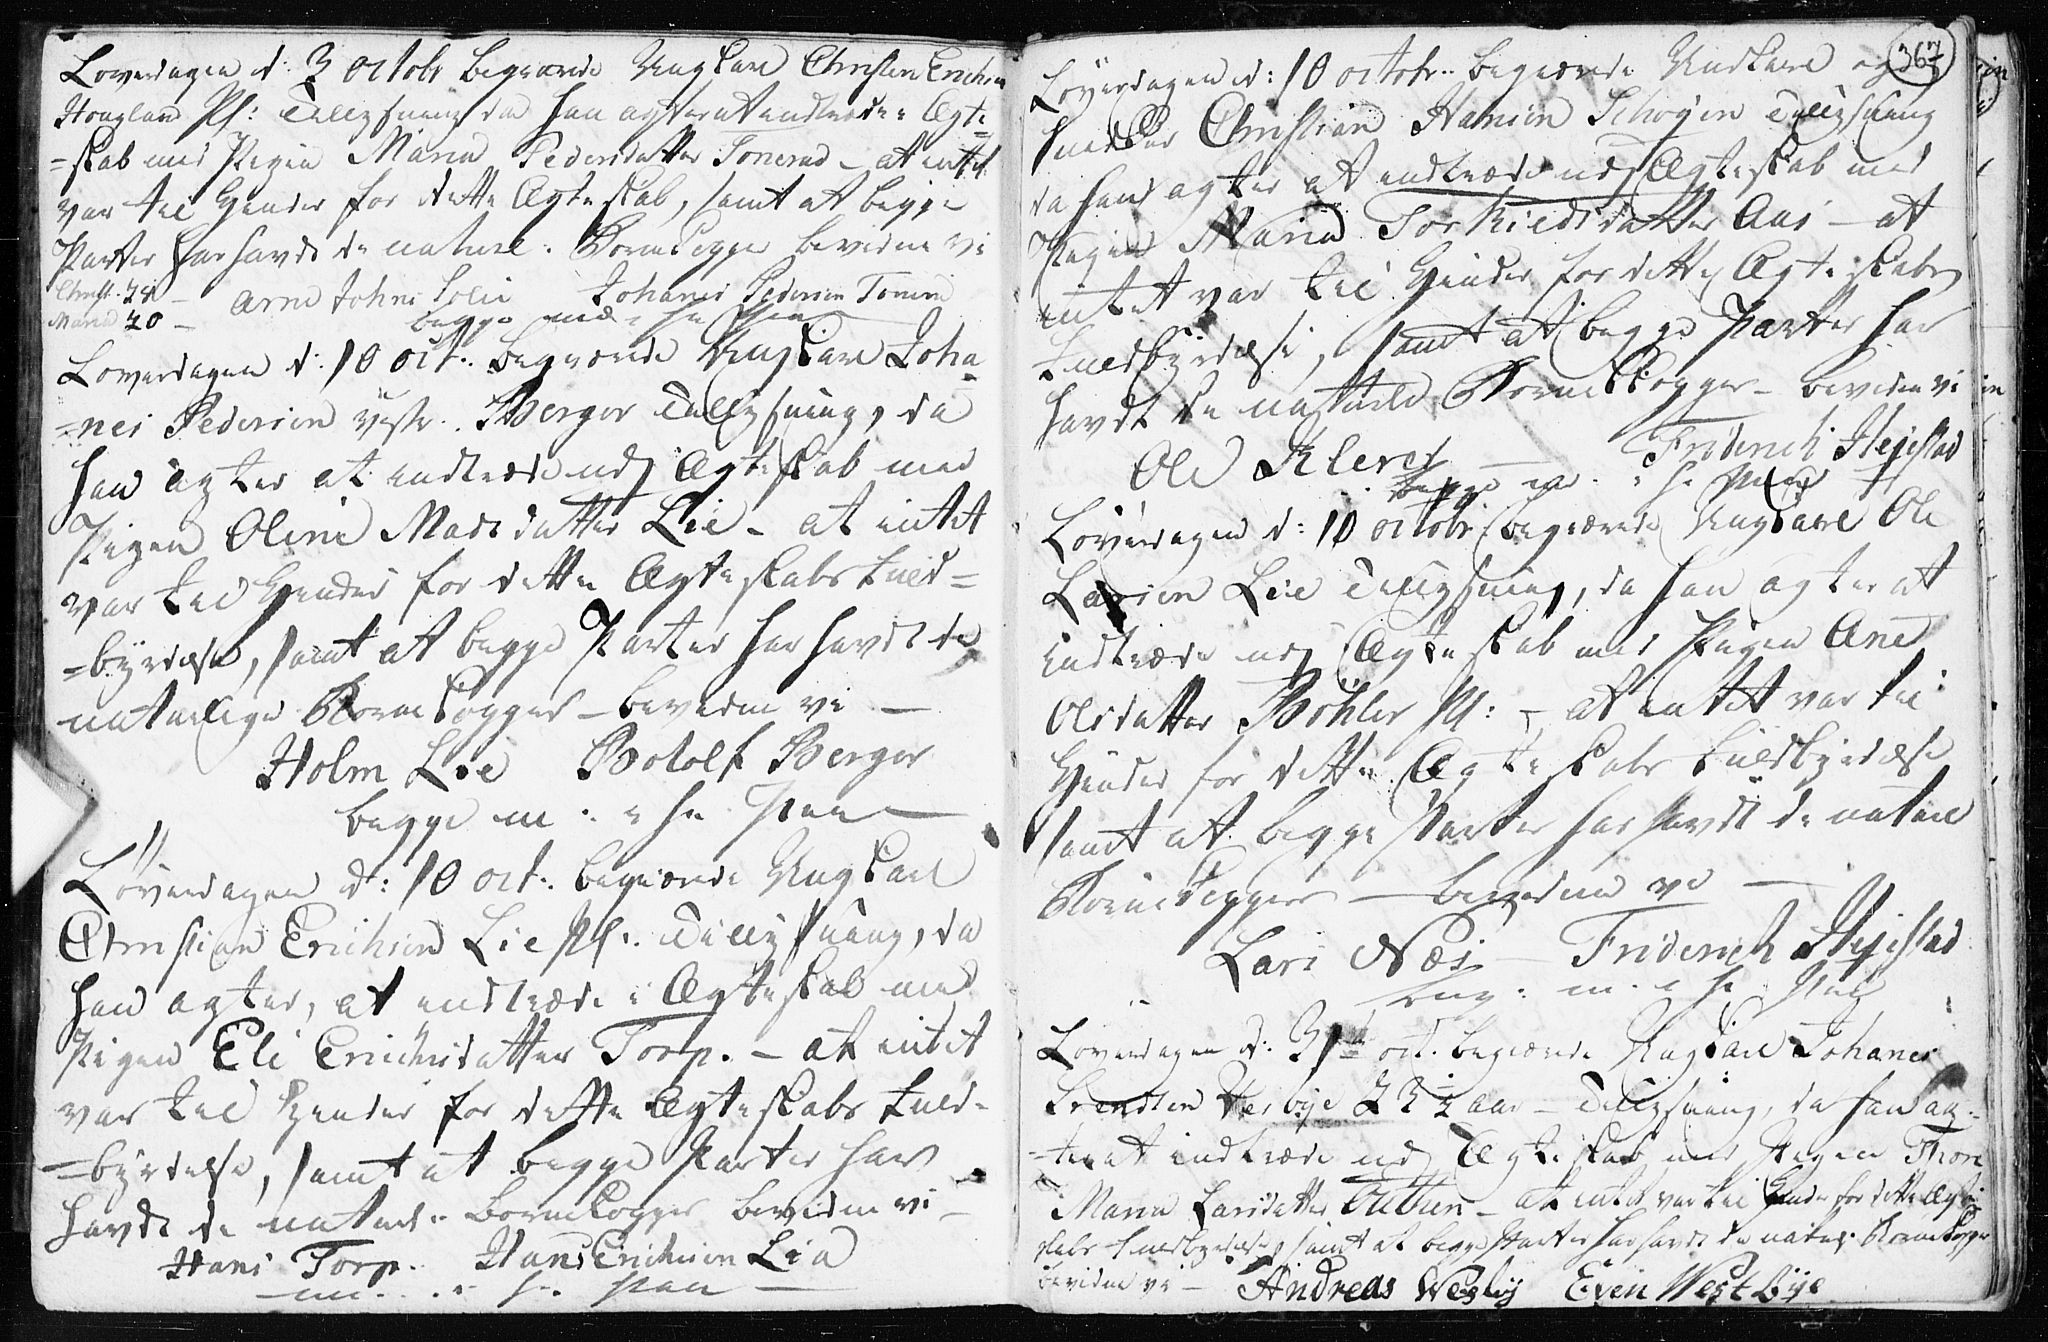 Löverdagen d: 3 octobr begierede Ungkarl Christen Erichsen
Hougland Pl: Tillysning da han agter at indtræde i Ægte=
=skab med Pigen Maria Pedersdatter Tonerud – at intet
var til Hinder for dette Ægteskab, samt at begge
Parter har havdt de naturl. Börnekopper bevidne vi
Christ. 24 – Arne Johns Lie Johanes Pedersen
Maria 20 – begge m
Löverdagen d: 10 oct. begierede Ungkarl Joha
=nes Pedersen vestr. Berger Tillysning, da
han agter at indtræde udj Ægteskab med
Pigen Oline Madsdatter Lie – at intet
var til Hinder for dette Ægteskabs Fuld=
=byrdelse, samt at begge Parter har havdt de
naturlige Börnekopper – bevidne vi –
Holm Lie Botolf Berger
begge m
Löverdagen d: 10 oct. begierede Ungkarl
Christian Erichsen Lie Pl. Tillysning, da
han agter, at indtræde i Ægteskab med
Pigen Eli Erichsdatter Torp. – at intet
var til Hinder for dette Ægteskabs Fuld=
=byrdelse, samt at begge Parter har
havdt de naturl. Börnekopper bevidne vi –
Hans Torp. Hans Erichsen Lia
m
367
Löverdagen d: 10 octobr. begierede Undkarl og
Christian Hansen Schøien Tillysning
da han agter at indtræde udj Ægteskab med
Pigen Maria Torkieldsdatter Aas – at
intet var til Hinder for dette Ægteskabs
Fuldbyrdelse, samt at begge Parter har
havdt de naturlie Börnekopper – bevidne vi
Ole Klever – Friderich Hejestad
begge m
Löverdagen d: 10 octobr begierede Ungkarl Ole
Larsen Lie Tillysning, da han agter at
indtræde udj Ægteskab med Pigen Ane
Olsdatter Böhler Pl: – at intet var til
Hinder for dette Ægteskabs Fuldbyrdelse
samt at begge Parter har havdt de naturl
Börnekopper – bevidne vi –
Lars Næs – Friderich Hejestad
m
Löverdagen d: 31te oct. begierede Ungkarl Johanes
Svendsen Vesbye 22½ aar – Tillysning, da han ag=
=ter at indtræde udj Ægteskab med Pigen Thore
Maria Larsdatter – at intet var til Hinder for dette Ægte
skabs Fuldbyrdelse, samt at begge Parter har havdt de naturl. Börnekopper
bevidne vi – Andreas Wesby Even Westbye